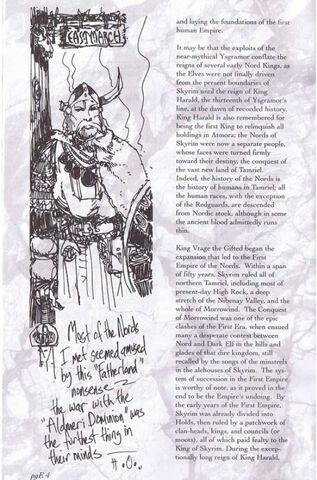 EASTMARCH
Most of the Nords
I met seemed amused
by this "Fatherland"
nonsense
the war with the
"Aldmeri Dominion" was
the furthest thing in
their minds
pgE 4
and laying the foundations of the first
human Empire.
It may be that the exploits of the
near-mythical Ysgramor conflate the
reigns of several early Nord Kings, as
the Elves were not finally driven
from the present boundaries of
Skyrim until the reign of King
Harald, the thirteenth of Ysgramor's
line, at the dawn of recorded history.
King Harald is also remembered for
being the first King to relinquish all
holdings in Atmora; the Nords of
Skyrim were now a separate people,
whose faces were turned firmly
toward their destiny, the conquest of
the vast new land of Tamriel.
Indeed, the history of the Nords is
the history of humans in Tamriel; all
the human races, with the exception
of the Redguards, are descended
from Nordic stock, although in some
the ancient blood admittedly runs
thin.
King Vrage the Gifted began the
expansion that led to the First
Empire of the Nords. Within a span
of fifty years, Skyrim ruled all of
northern Tamriel, including most of
present-day High Rock, a deep
stretch of the Nibenay Valley, and the
whole of Morrowind. The Conquest
of Morrowind was one of the epic
clashes of the First Era, when ensued
many a desperate contest between
Nord and Dark Elf in the hills and
glades of that dire kingdom, still
recalled by the songs of the minstrels
in the alehouses of Skyrim. The sys-
tem of succession in the First Empire
is worthy of note, as it proved in the
end to be the Empire's undoing. By
the early years of the First Empire,
Skyrim was already divided into
Holds, then ruled by a patchwork of
clan-heads, kings, and councils (or
moots), all of which paid fealty to the
King of Skyrim. During the excep-
tionally long reign of King Harald,